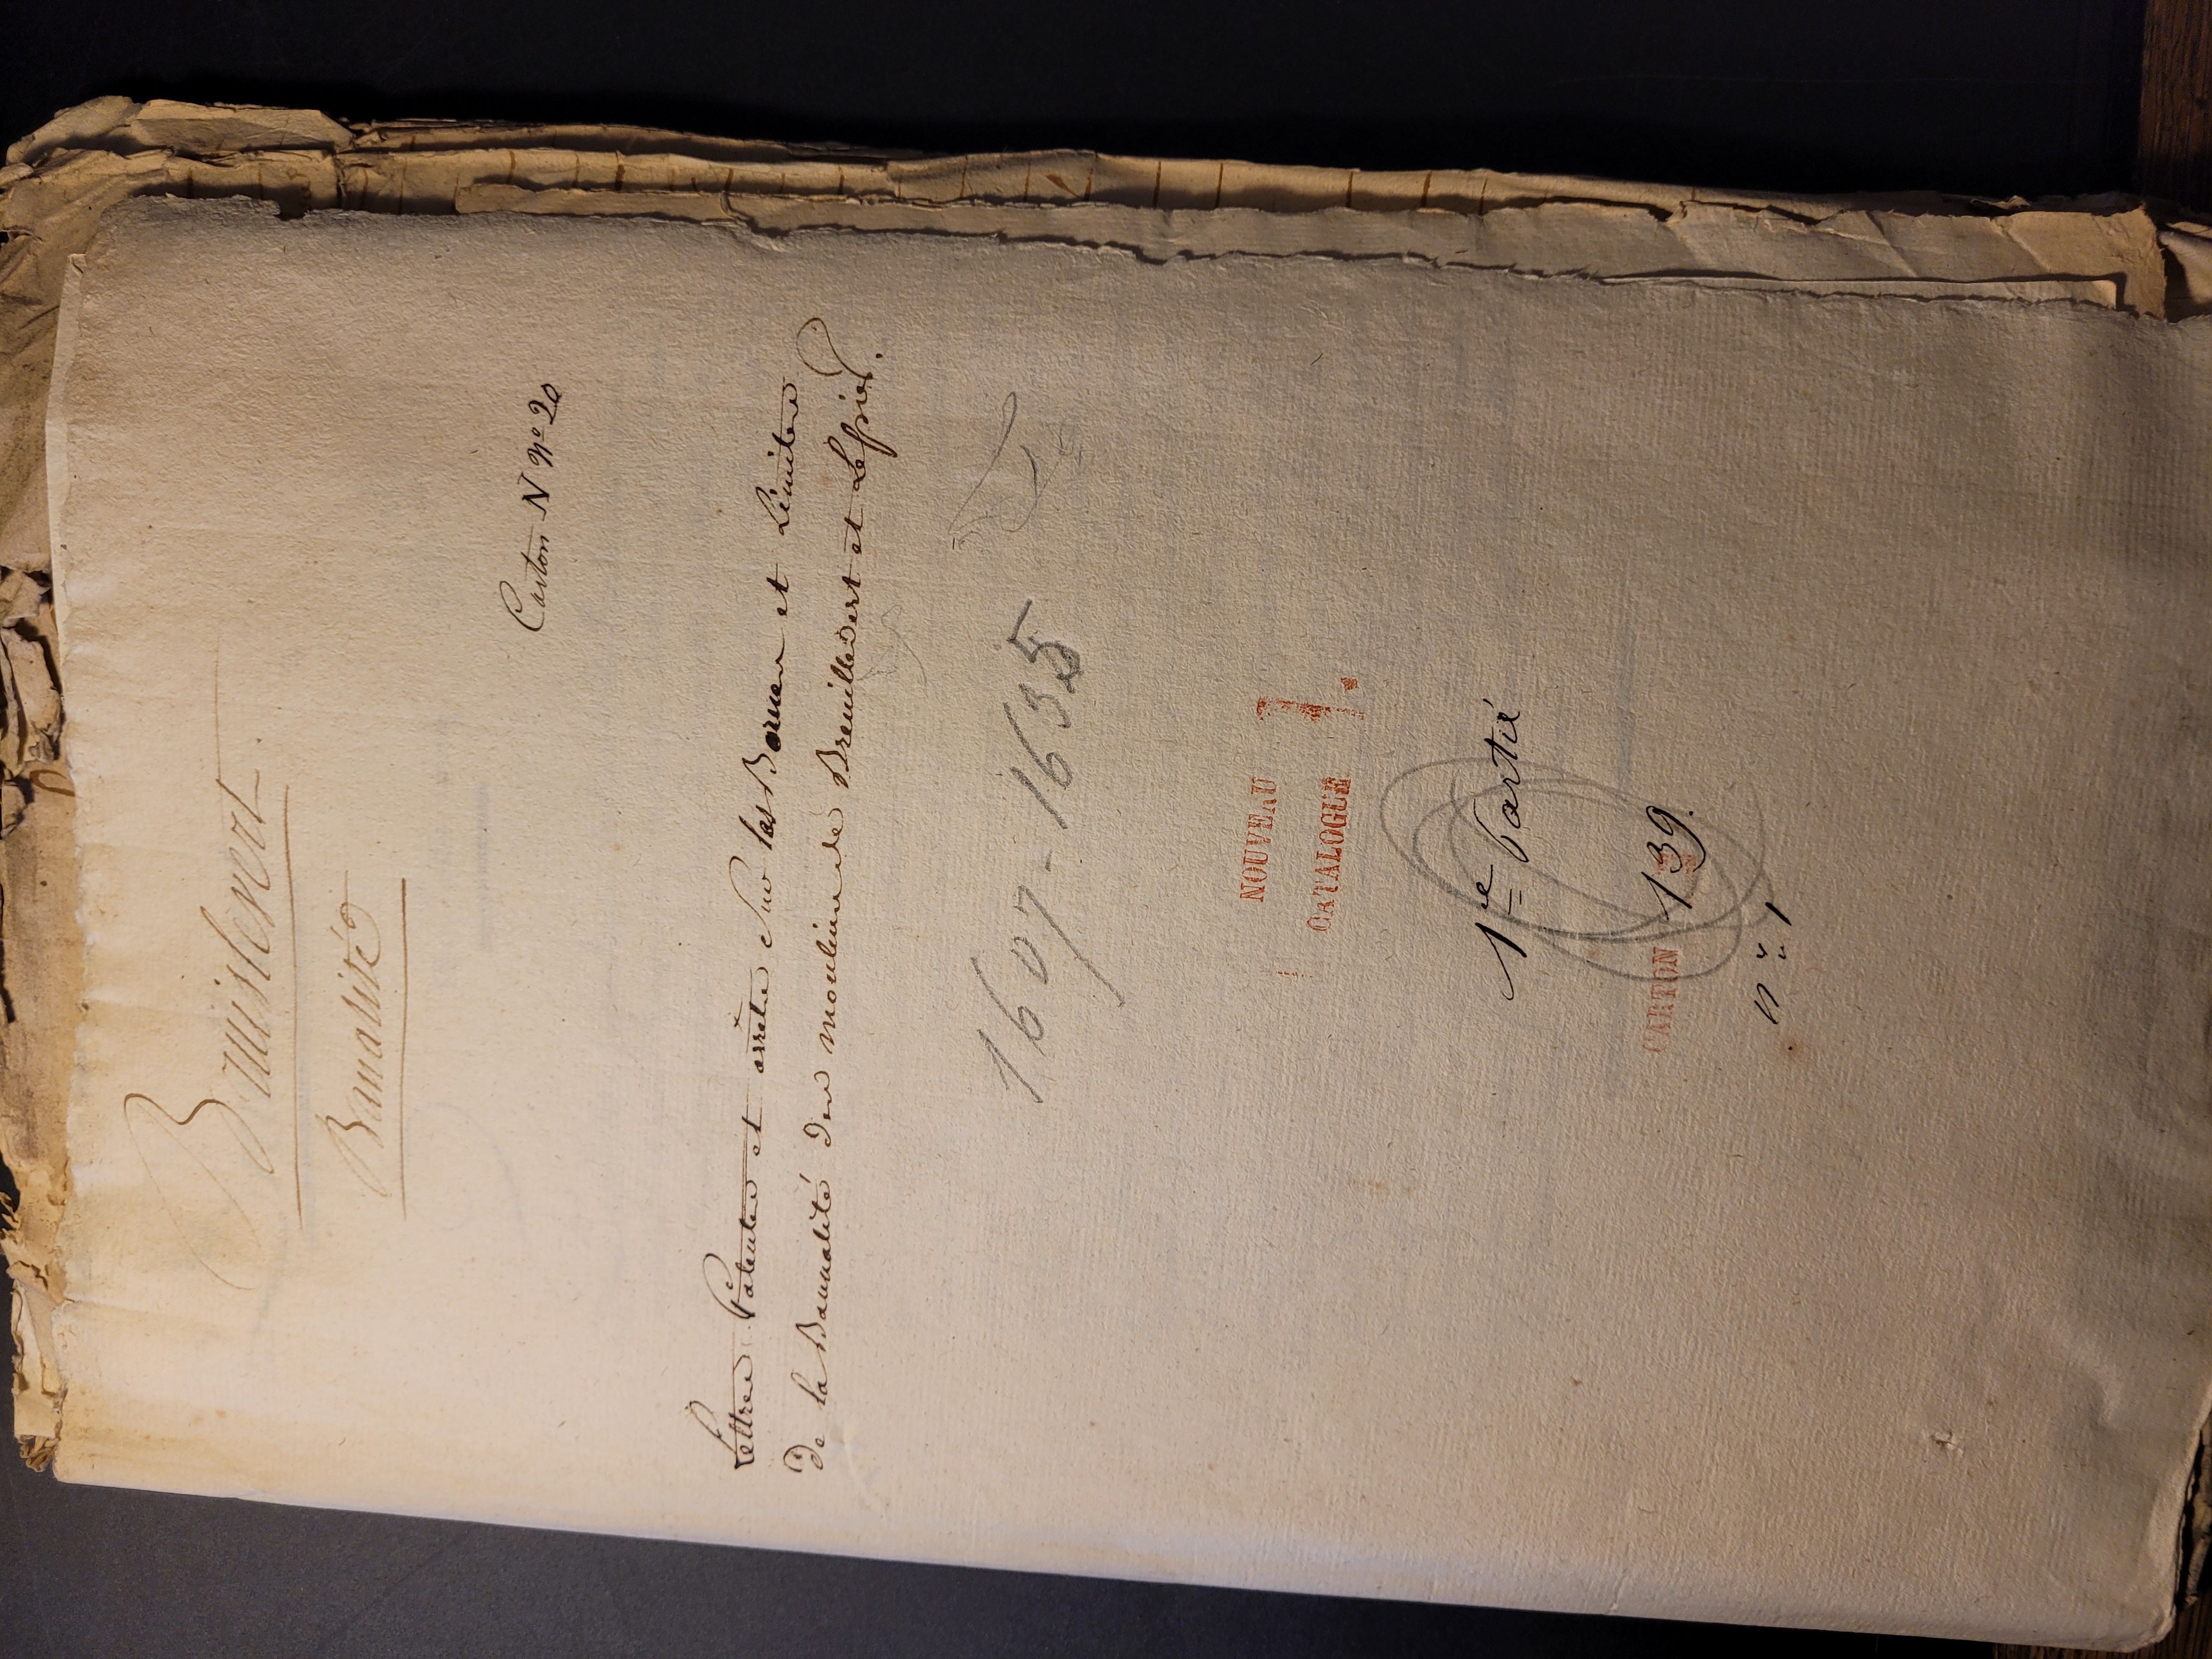 Banalité
Carton N n° 20
Lettres Patentes et arrêts sur les Bornes et Limites
De la Bannalité des moulins de Breuillevert et Lessier.
1607-1635
NOUVEAU
CATALOGUE
1re Partie
CARTON 139.
n° 1